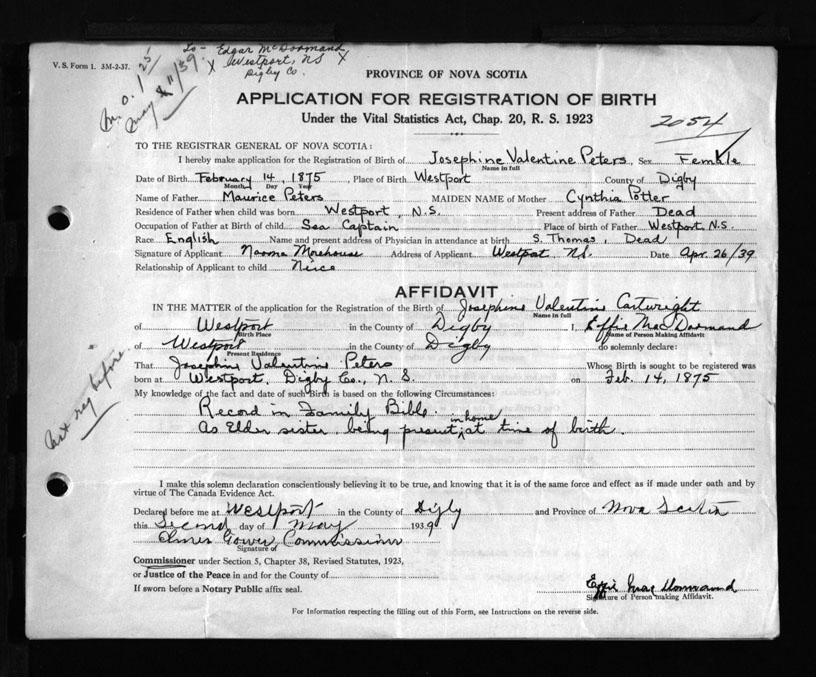 V. S. Form 1. 3M-2-37.
To- Edgar McDormand
X Westport, NS X
Digby Co.
M.O. 1 25
May 11/39
PROVINCE OF NOVA SCOTIA
APPLICATION FOR REGISTRATION OF BIRTH
Under the Vital Statistics Act, Chap. 20, R. S. 1923
2054
TO THE REGISTRAR GENERAL OF NOVA SCOTIA:
I hereby make application for the Registration of Birth of Josephine Valentine Peters, Sex Female
Name in full
Date of Birth February 14, 1875, Place of Birth Westport County of Digby
Month Day Year
Name of Father Maurice Peters MAIDEN NAME of Mother Cynthia Potter
Residence of Father when child was born Westport, N.S. Present address of Father Dead
Occupation of Father at Birth of child Sea Captain Place of birth of Father Westport, N.S.
Race English Name and present address of Physician in attendance at birth S. Thomas, Dead
Signature of Applicant Naoma Morehouse Address of Applicant Westport N.S. Date Apr. 26/39
Relationship of Applicant to child Niece
AFFIDAVIT
IN THE MATTER of the application for the Registration of the Birth of Josephine Valentine Cartwright
Name in full
of Westport in the County of Digby I, Effie MacDormand
Birth Place Name of Person Making Affidavit
of Westport in the County of Digby do solemnly declare:
Present Residence
That Josephine Valentine Peters Whose Birth is sought to be registered was
born at Westport, Digby Co., N. S. on Feb. 14, 1875
My knowledge of the fact and date of such Birth is based on the following Circumstances:
Record in Family Bible.
As Elder sister being present, in home at time of birth.
Not reg before
I make this solemn declaration conscientiously believing it to be true, and knowing that it is of the same force and effect as if made under oath and by
virtue of The Canada Evidence Act.
Declared before me at Westport in the County of Digby and Province of Nova Scotia
this Second day of May 1939
Elmer Gower Commissioner
Signature of
Commissioner under Section 5, Chapter 38, Revised Statutes, 1923,
or Justice of the Peace in and for the County of
If sworn before a Notary Public affix seal.
Effie MacDormand
Signature of Person making Affidavit.
For Information respecting the filling out of this Form, see Instructions on the reverse side.